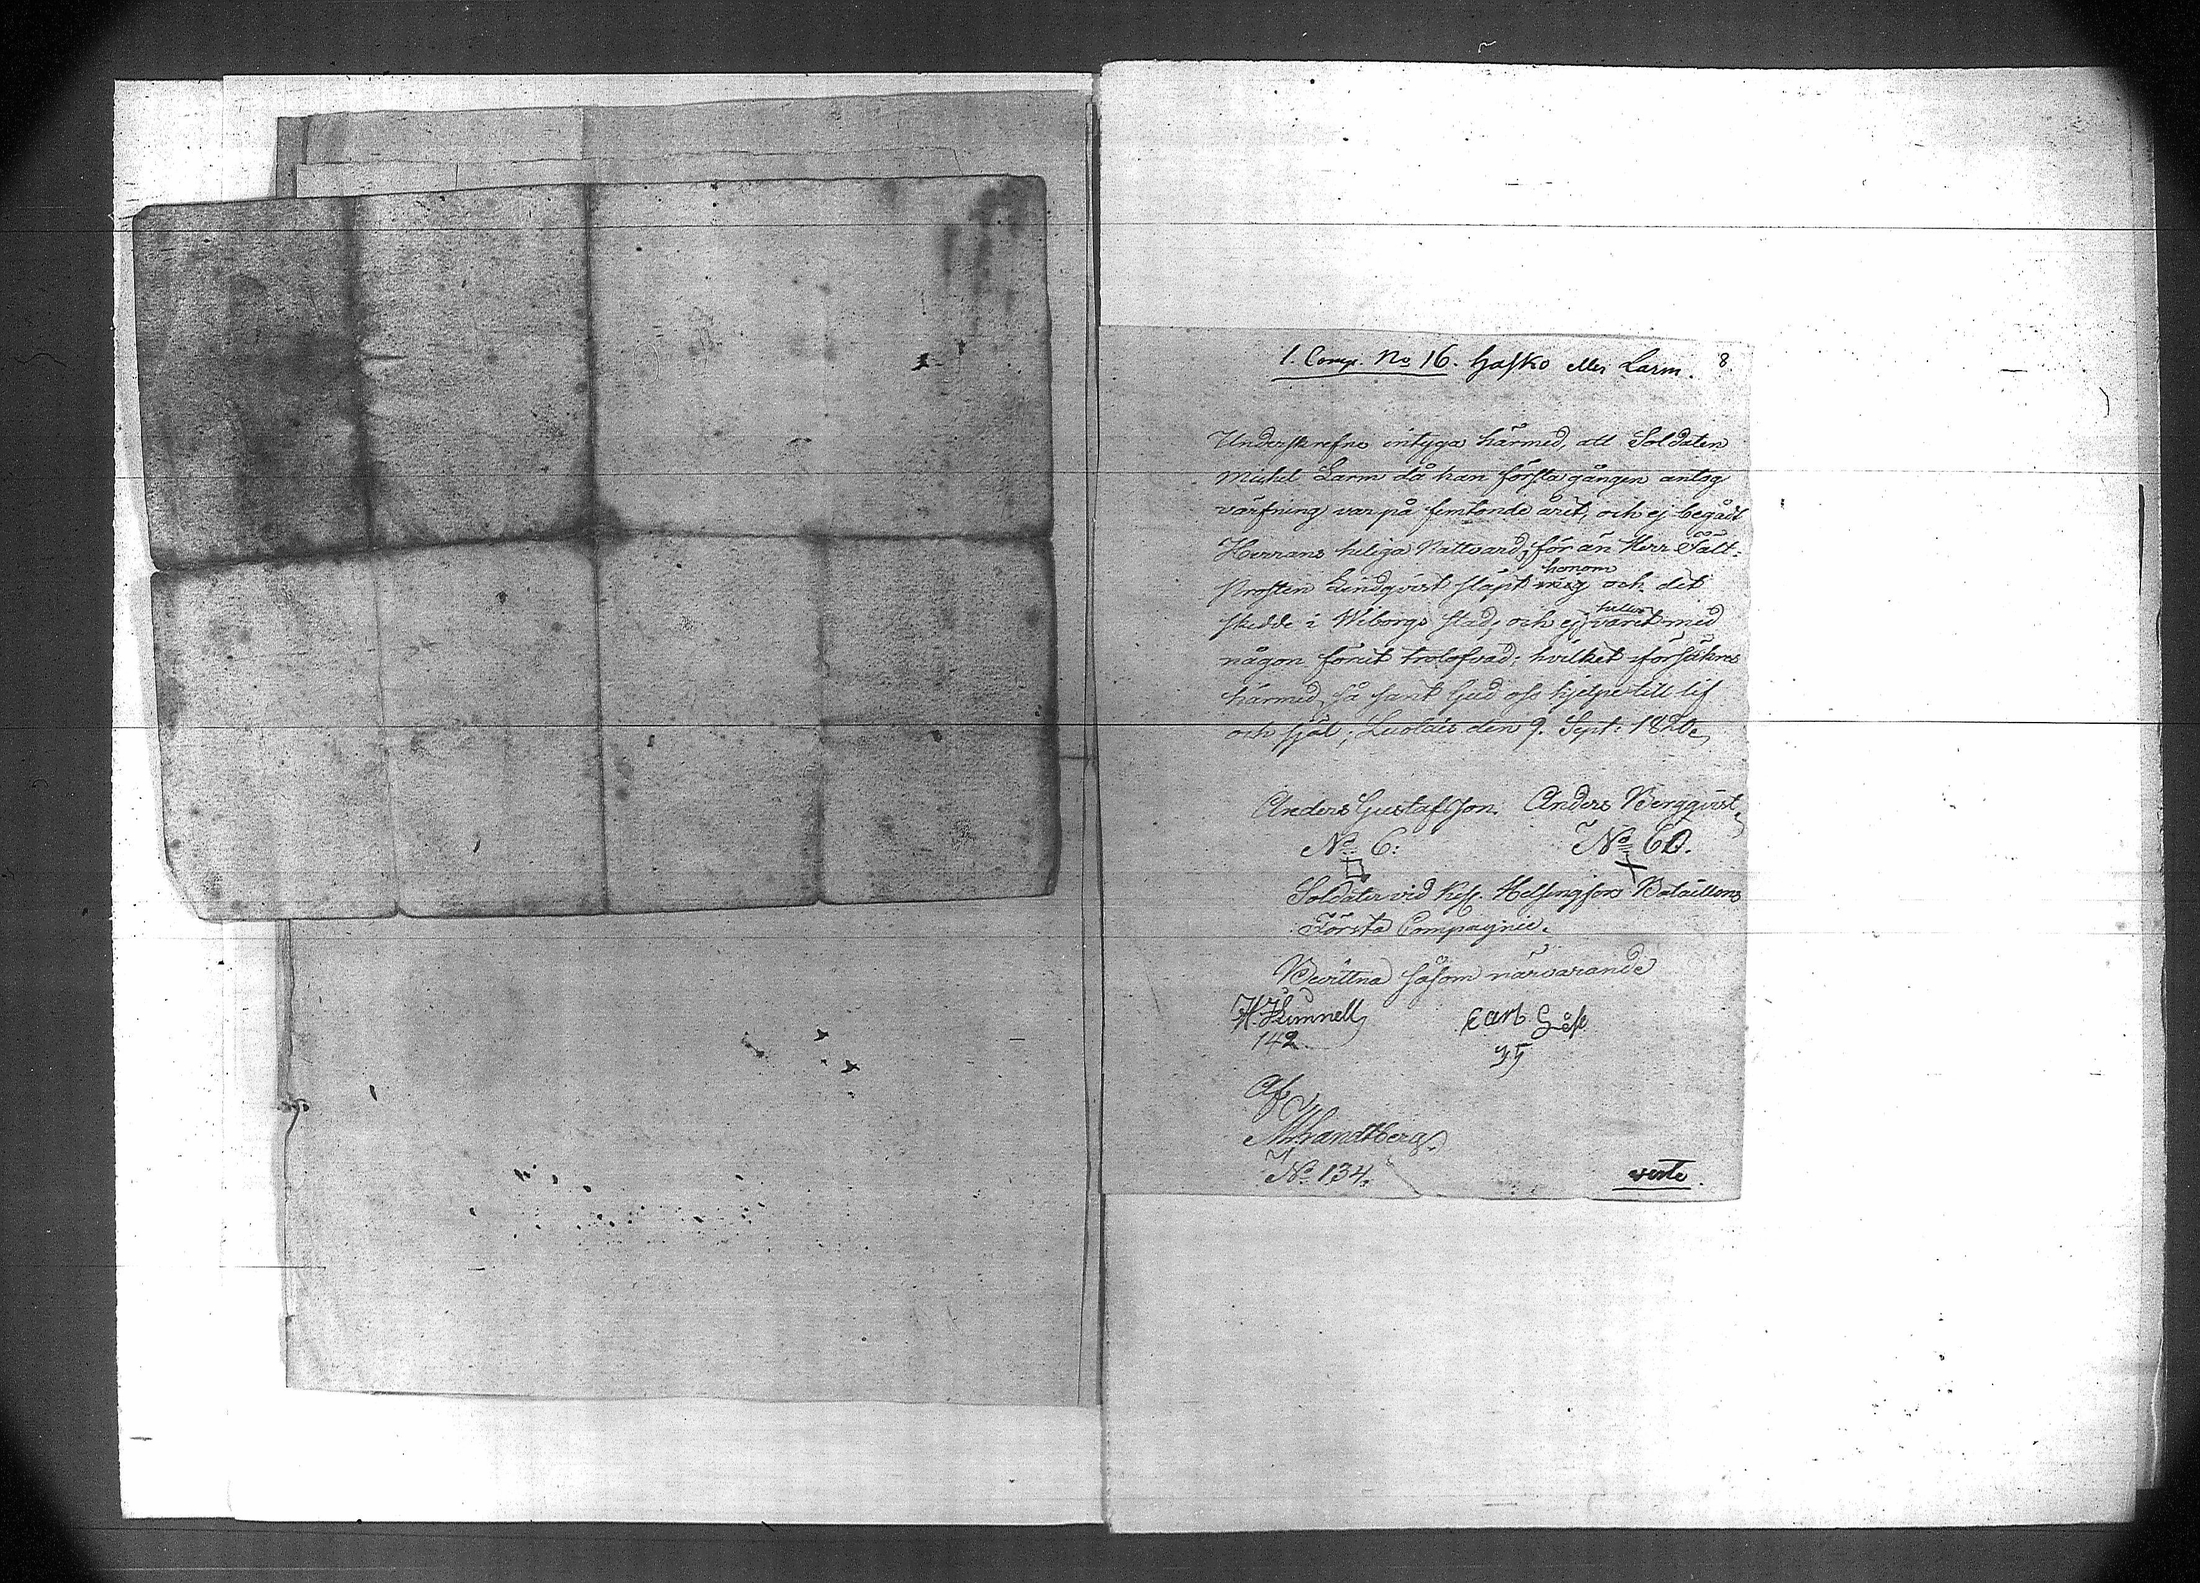 1. Comp. No 16. Hasko eller Larm. 8
Underskrefne intyga härmed, att Soldaten
Michel Larm då han första gången antog
värfning var på femtonde året, och ej begådt
Herrans heliga Nattvard, för än Herr Fält-
honom
Prosten Lindqvist släpt mig och det
heller
skedde i Wiborgs stad, och ej varit med
någon förut trolofvad: hvilket försäkras
härmed, så sant Gud oss hjelpe till lif
och själ; den 9. Sept: 1820,
Anders Gustafsson. Anders Bergqvist,
No 6: No 60.
Soldater vid Helsingfors Bataillons
Första Compagnie.
Bevittna såsom närvarande
142 Carl
Af
No 134.
verte.